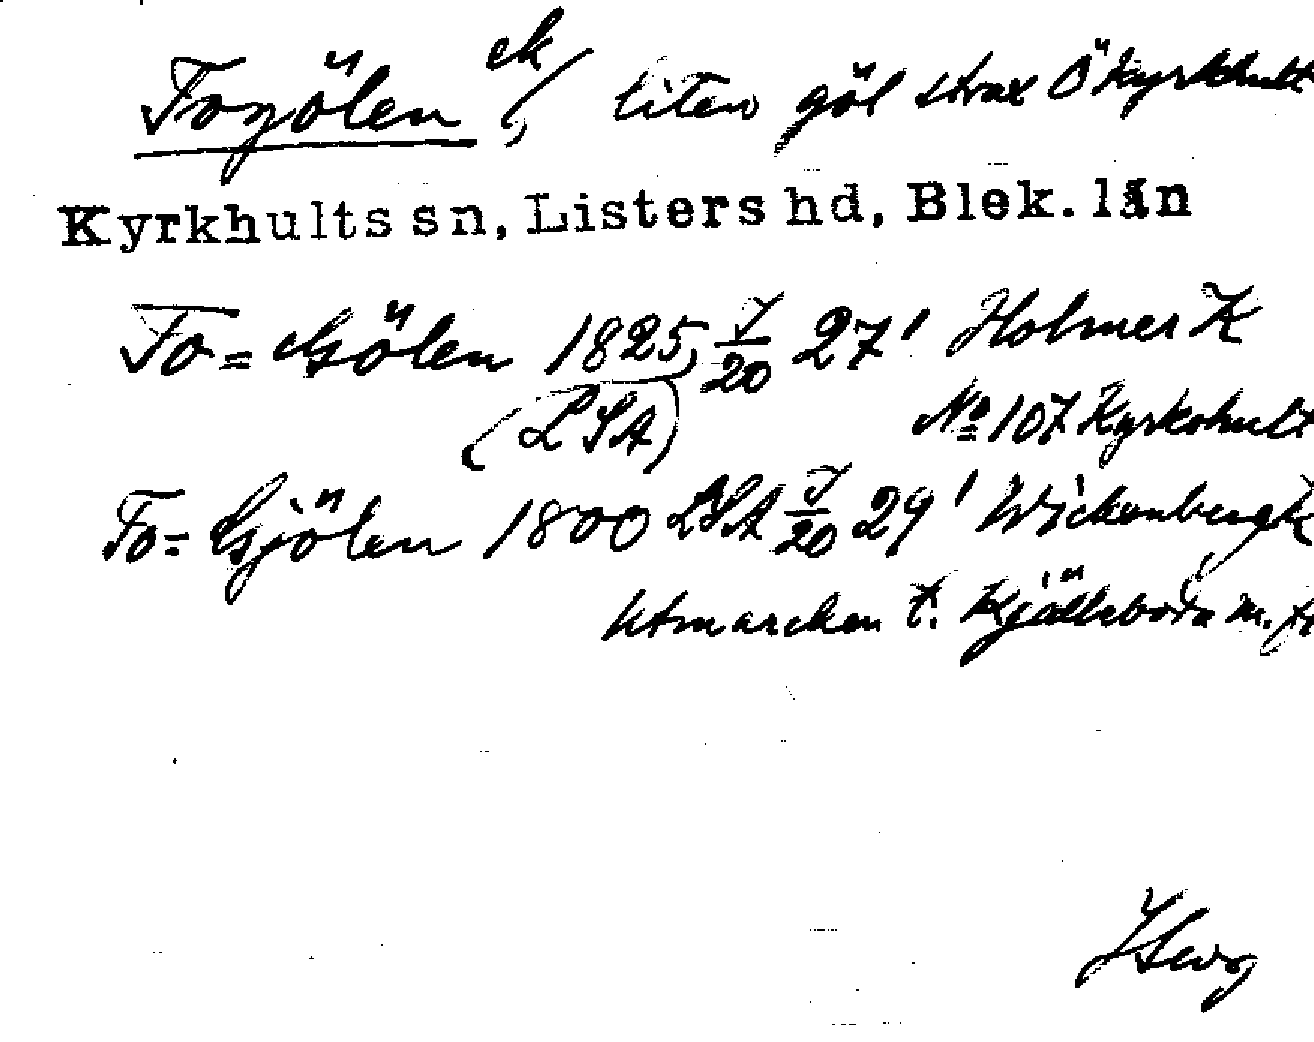 Fogölen ek, liten göl strax Ö Kyrkhult
Kyrkhults sn, Listers hd, Blek. län
Fo=Gölen 1825, J/20 27' Holmer K
(LSA) No 107 Kyrkohult
Fo=Gjölen 1800 LSA J/20 29' Wickenberg K
Utmarcken t. Kjälleboda m. fl